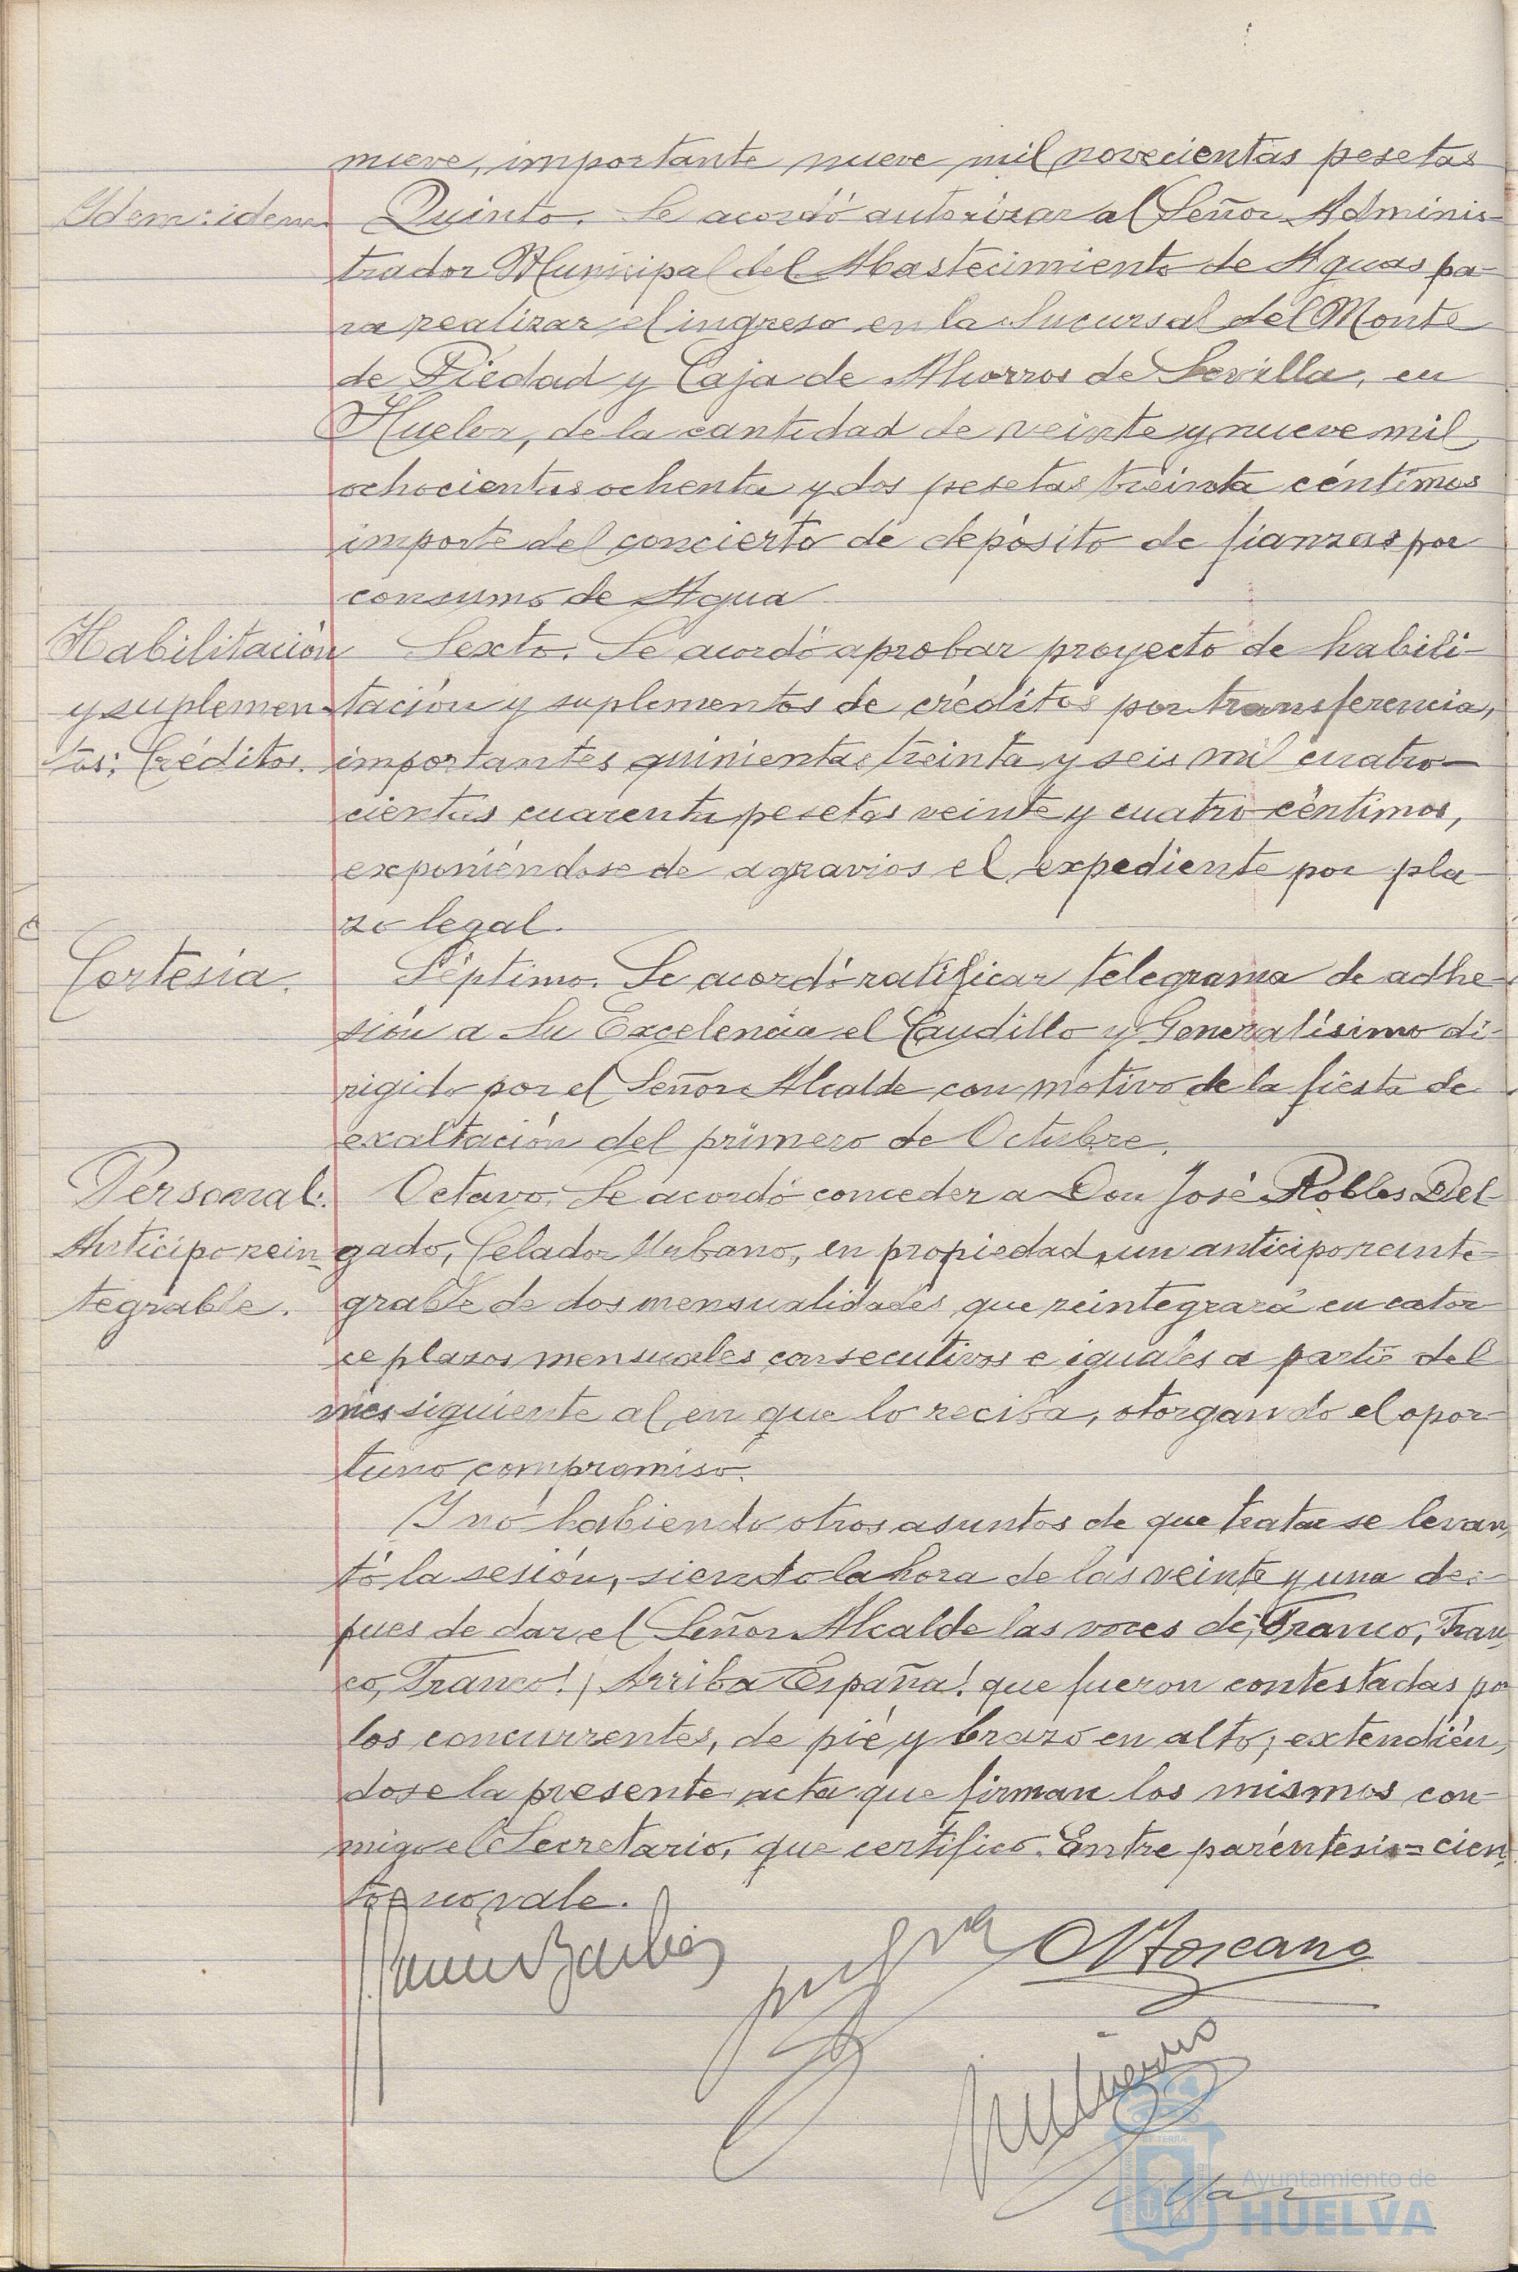 nueve, importante nueve mil novecientas pesetas
Idem: idem. Quinto. Se acordó autorizar al Señor Adminis-
trador Municipal del Abastecimiento de Aguas pa-
ra realizar el ingreso en la Sucursal del Monte
de Piedad y Caja de Ahorros de Sevilla, en
Huelva, de la cantidad de veinte y nueve mil
ochocientas ochenta y dos pesetas treinta céntimos
importe del concierto de depósito de fianzas por
consumo de Agua
Habilitación Sexto. Se acordó aprobar proyecto de habili-
y suplemen- tación y suplementos de créditos por transferencia,
tos; Créditos. importantes quinientas treinta y seis mil cuatro-
cientas cuarenta pesetas veinte y cuatro céntimos,
exponiéndose de agravios el expediente por pla-
zo legal.
Cortesía. Séptimo. Se acordó ratificar telegrama de adhe-
sión a Su Excelencia el Caudillo y Generalísimo di-
rigido por el Señor Alcalde con motivo de la fiesta de
exaltación del primero de Octubre.
Personal: Octavo. Se acordó conceder a Don José Robles Del-
Anticipo rein- gado, Celador Urbano, en propiedad, un anticipo reinte-
tegrable. grable de dos mensualidades que reintegrará en cator-
ce plazos mensuales consecutivos e iguales a partir del
mes siguiente al en que lo reciba, otorgando el opor-
tuno compromiso.
Y no habiendo otros asuntos de que tratar se levan-
tó la sesión, siendo la hora de las veinte y una des-
pues de dar el Señor Alcalde las voces de ¡Franco, Fran-
co, Franco! ¡Arriba España! que fueron contestadas por
los concurrentes, de pié y brazo en alto; extendién-
dose la presente acta que firman los mismos con-
migo el Secretario, que certifico. Entre paréntesis = cien-
to = no vale.
Ayuntamiento de
HUELVA